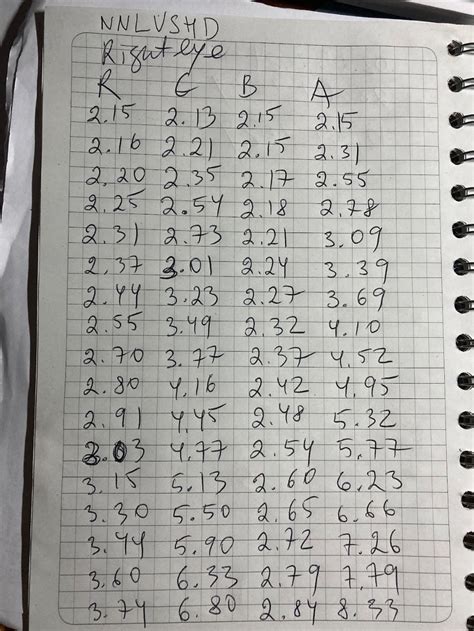 NNLVSHD
Right eye
R G B A
2.15 2.13 2.15 2.15
2.16 2.21 2.15 2.31
2.20 2.35 2.17 2.55
2.25 2.54 2.18 2.78
2.31 2.73 2.21 3.09
2.37 3.01 2.24 3.39
2.44 3.23 2.27 3.69
2.55 3.49 2.32 4.10
2.70 3.77 2.37 4.52
2.80 4.16 2.42 4.95
2.91 4.45 2.48 5.32
3.03 4.77 2.54 5.77
3.15 5.13 2.60 6.23
3.30 5.50 2.65 6.66
3.44 5.90 2.72 7.26
3.60 6.33 2.79 7.79
3.74 6.80 2.84 8.33